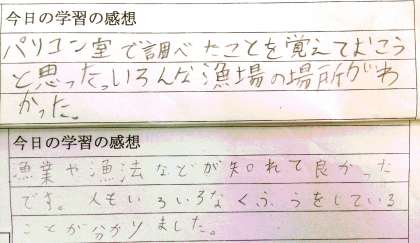 今日の学習の感想
パソコン室で調べたことを覚えておこう
と思った。いろんな漁場の場所がわ
かった。
今日の学習の感想
漁業や漁法などが知れて良かった
です。人もいろいろなくふうをしている
ことが分かりました。